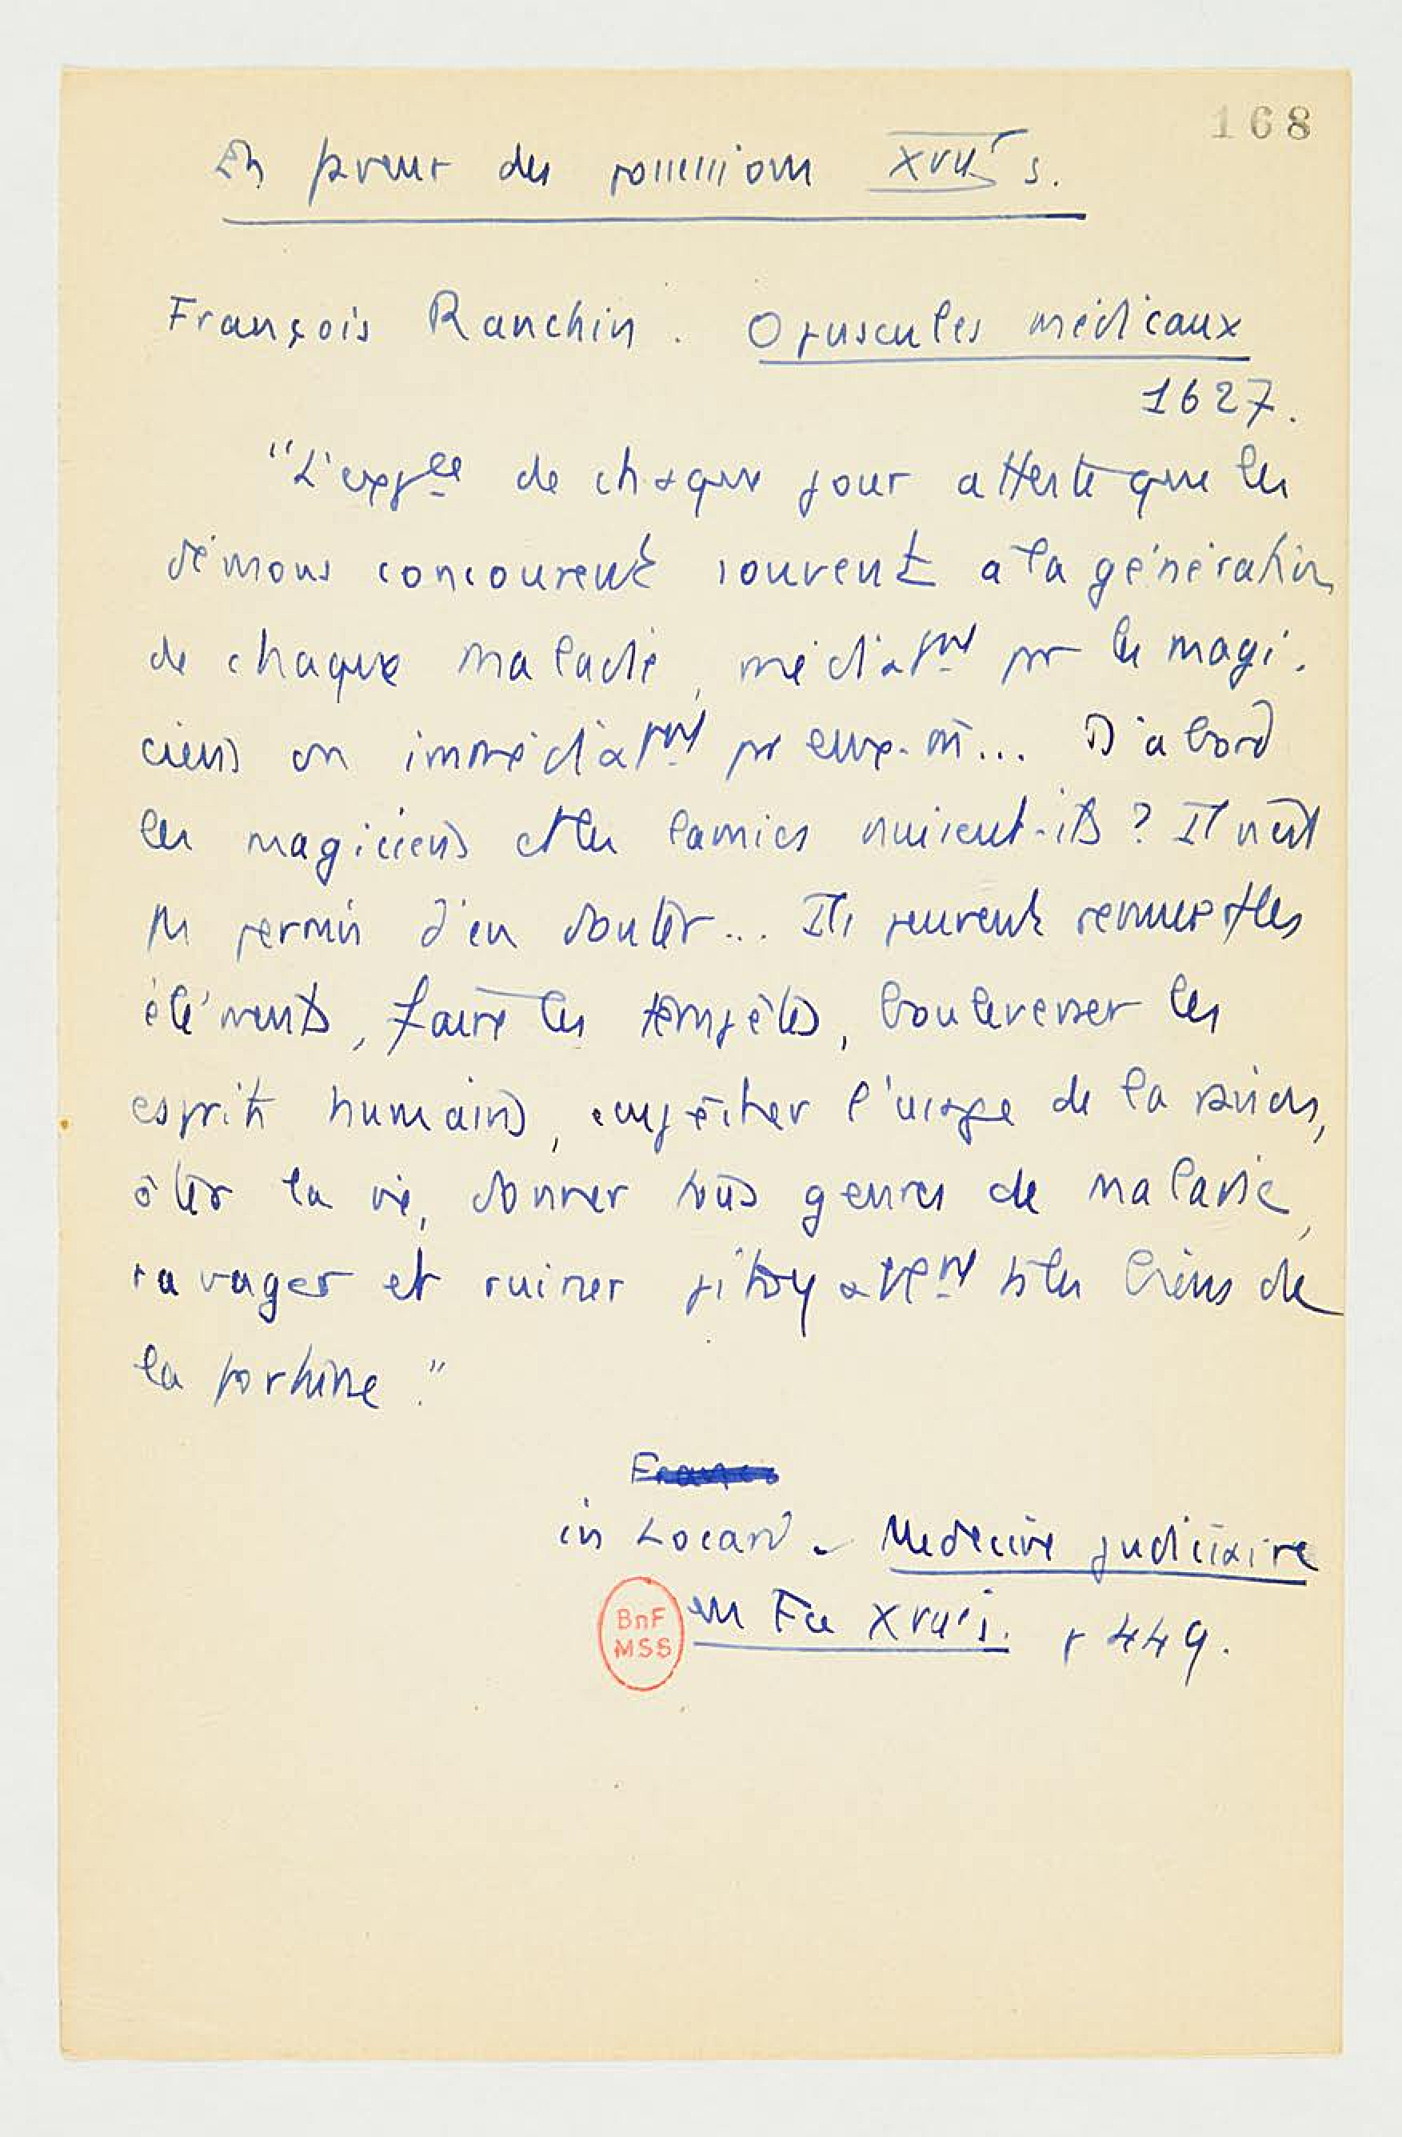 168
En faveur des possessions XVIIe s.
François Ranchin. Opuscules médicaux
1627.
"L'expce de chaque jour atteste que les
démons concourent souvent à la génération
de chaque maladie, médiatmt par les magi-
ciens ou immédiatmt par eux-m̄... D'abord
les magiciens et les lamies nuisent-ils ? Il n'est
pas permis d'en douter... Ils peuvent remuer les
éléments, faire les tempêtes, bouleverser les
esprits humains, empêcher l'usage de la raison,
ôter la vie, donner tous genres de maladie,
ravager et ruiner pitoyablemt ts les biens de
la fortune."
in Locard - Médecine judiciaire
en Fce XVIIe s. p 449.
BnF
MSS